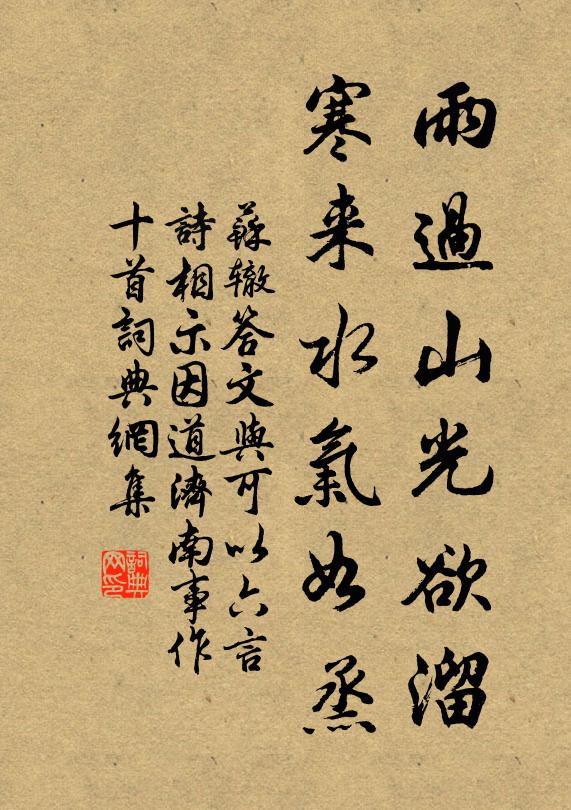 雨過山光欲溜
寒来水氣如蒸
蘇辙答文與可以六言
詩相示因道濟南事作
十首詞典網集
詞典网印